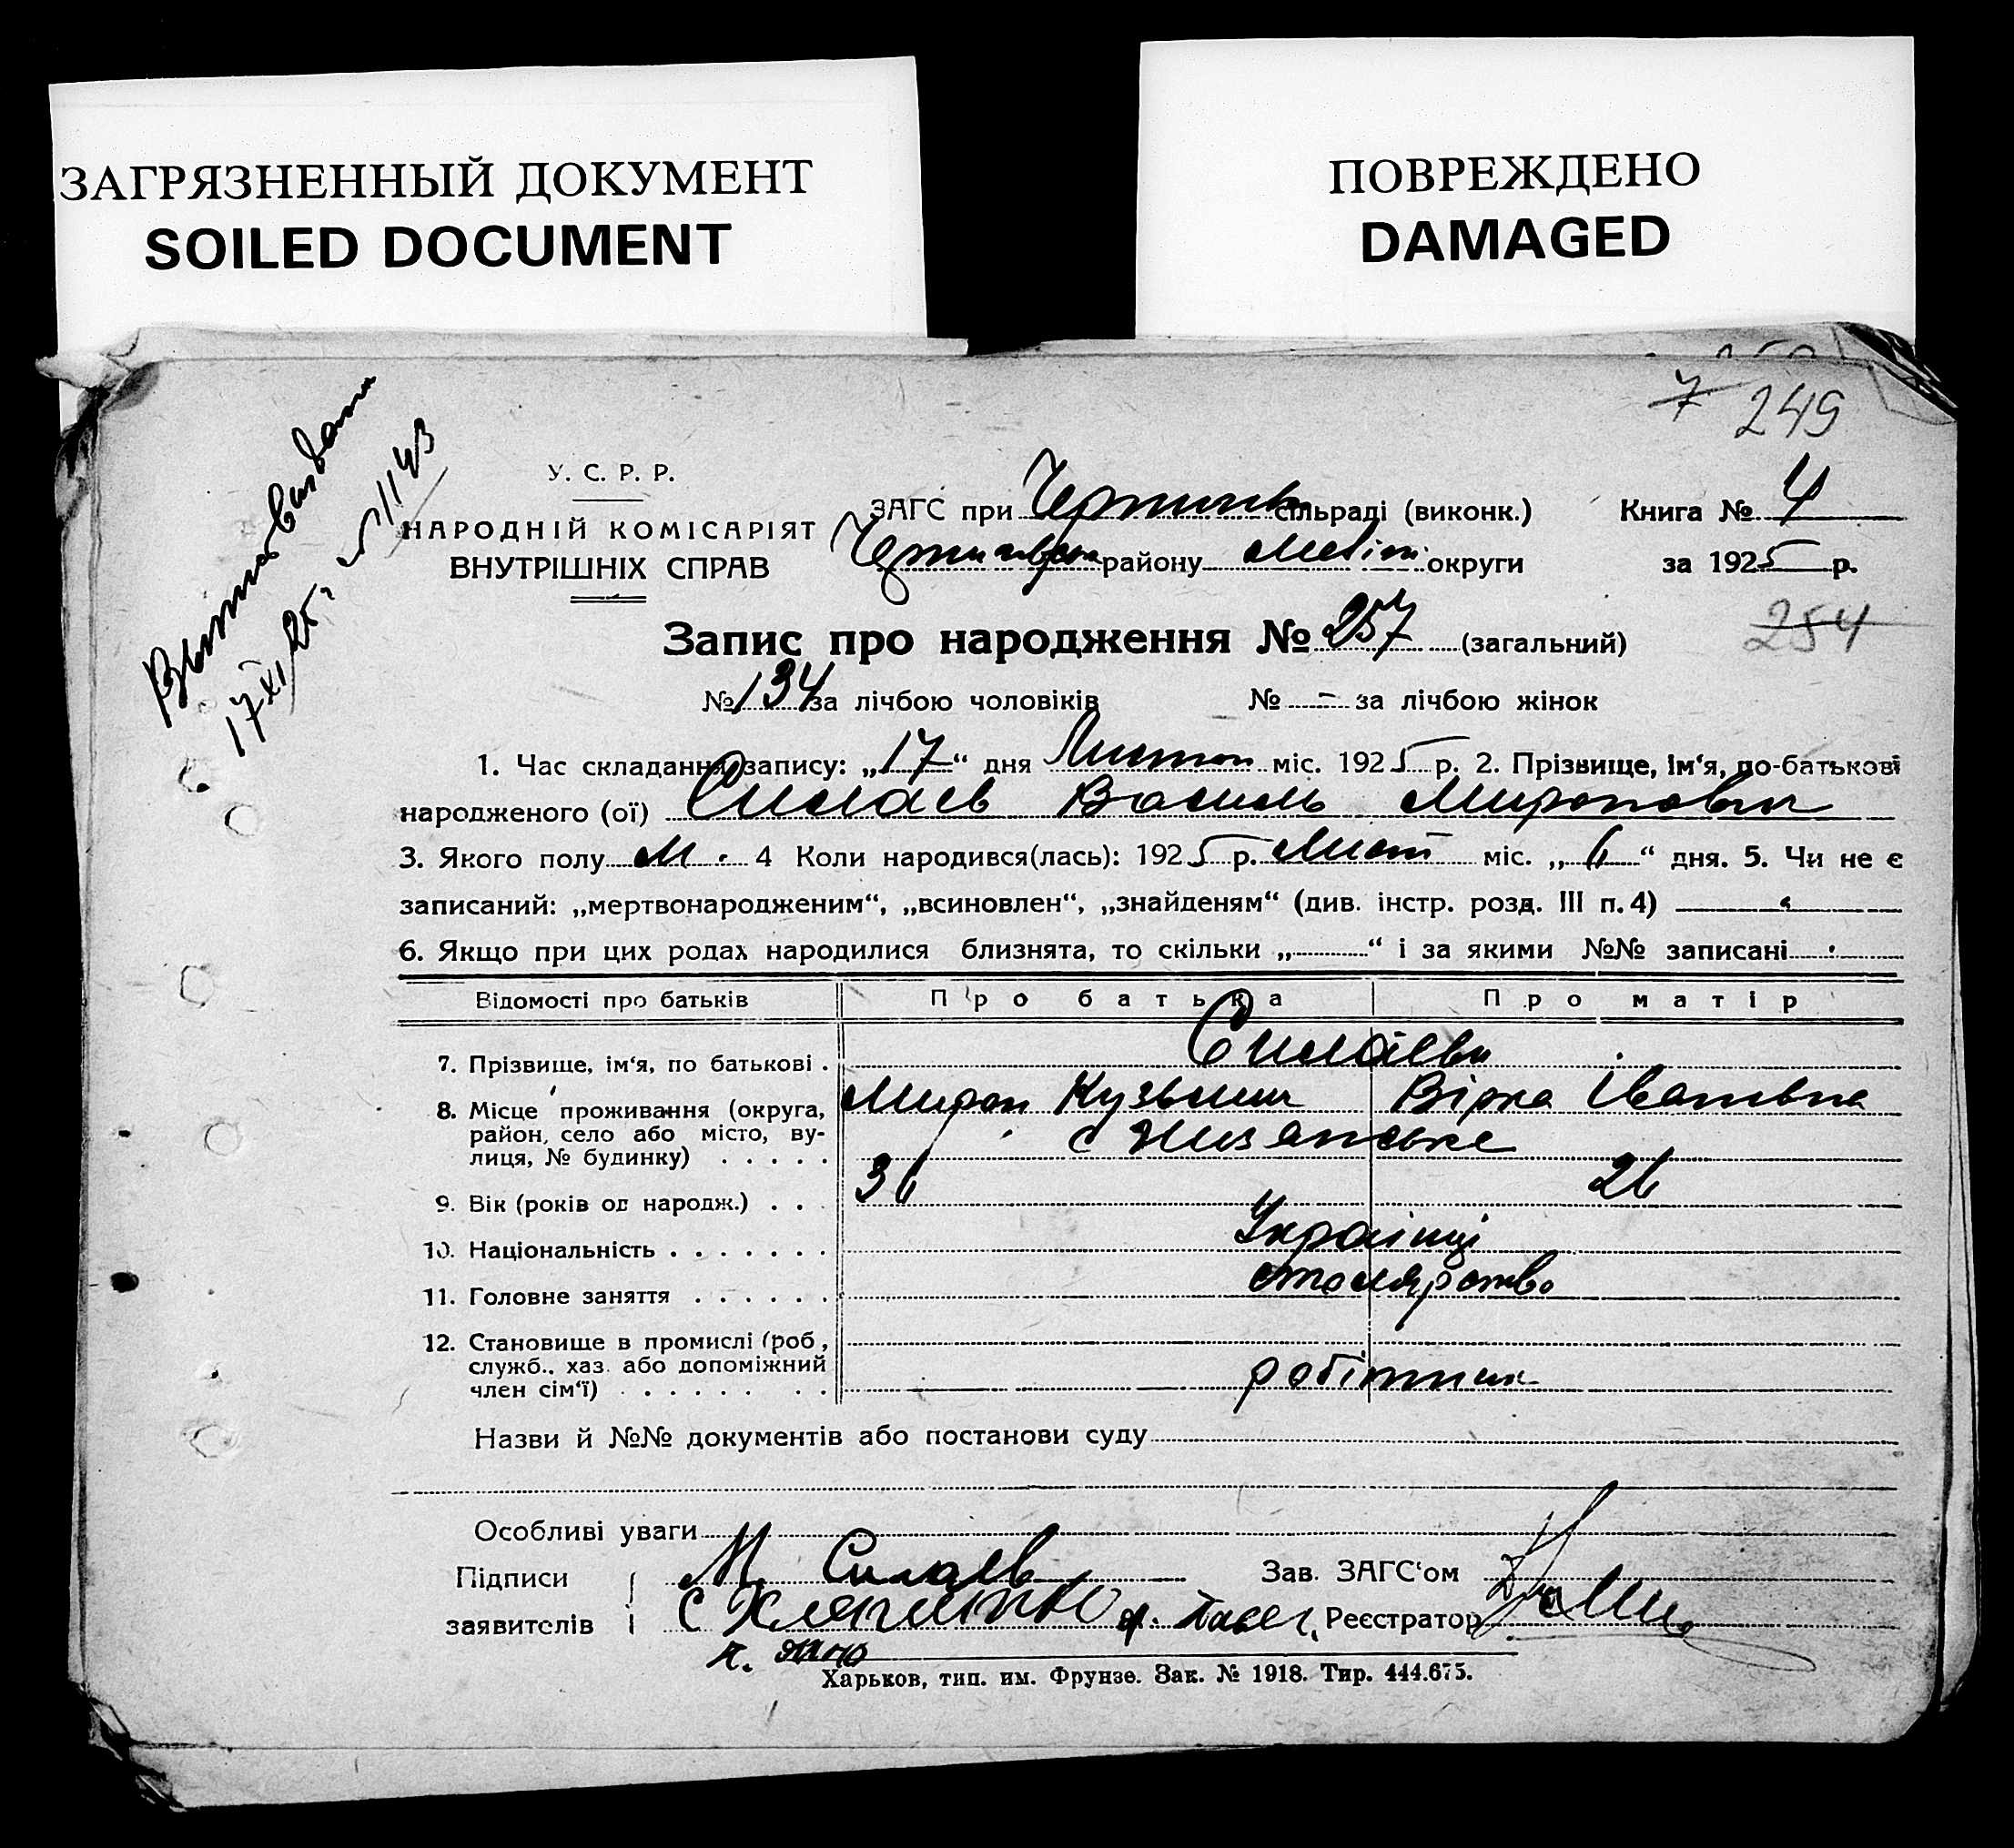 ЗАГРЯЗНЕННЫЙ ДОКУМЕНТ
SOILED DOCUMENT
ПОВРЕЖДЕНО
DAMAGED
7 249
17 XI 25 № 1143
У. С. Р. Р.
НАРОДНІЙ КОМІСАРІЯТ
ВНУТРІШНІХ СПРАВ
ЗАГС при сільраді (виконк.) Книга № 4
району Меліт. округи за 1925 р.
Запис про народження № 257 (загальний)
254
№ 134 за лічбою чоловіків № – за лічбою жінок
1. Час складання запису: „17“ дня Листоп міс. 1925 р. 2. Прізвище, ім‘я, по-батькові
народженого (ої) Силаєв Василь Миронович
3. Якого полу М. 4 Коли народився(лась): 1925 р. Лист міс. „6“ дня. 5. Чи не є
записаний: „мертвонародженим“, „всиновлен“, „знайденям“ (див. інстр. розд. III п. 4)
6. Якщо при цих родах народилися близнята, то скільки „ “ і за якими №№ записані
Відомості про батьків Про батька Про матір
7. Прізвище, ім‘я, по батькові . Силаєви
Мирон Кузьмич Вірка Івановна
8. Місце проживання (округа,
район, село або місто, ву-
лиця, № будинку) . . . . .
с
9. Вік (років од народж.) . . . 36 26
10. Національність . . . . . . . Українці
11. Головне заняття . . . . . . столярство
12. Становище в промислі (роб.,
служб., хаз. або допоміжний
член сім‘ї) . . . . . . . робітник
Назви й №№ документів або постанови суду
Особливі уваги
Підписи М. Силаев Зав. ЗАГС‘ом
заявителів Реєстратор
Харьков, тип. им. Фрунзе. Зак. № 1918. Тир. 444.675.